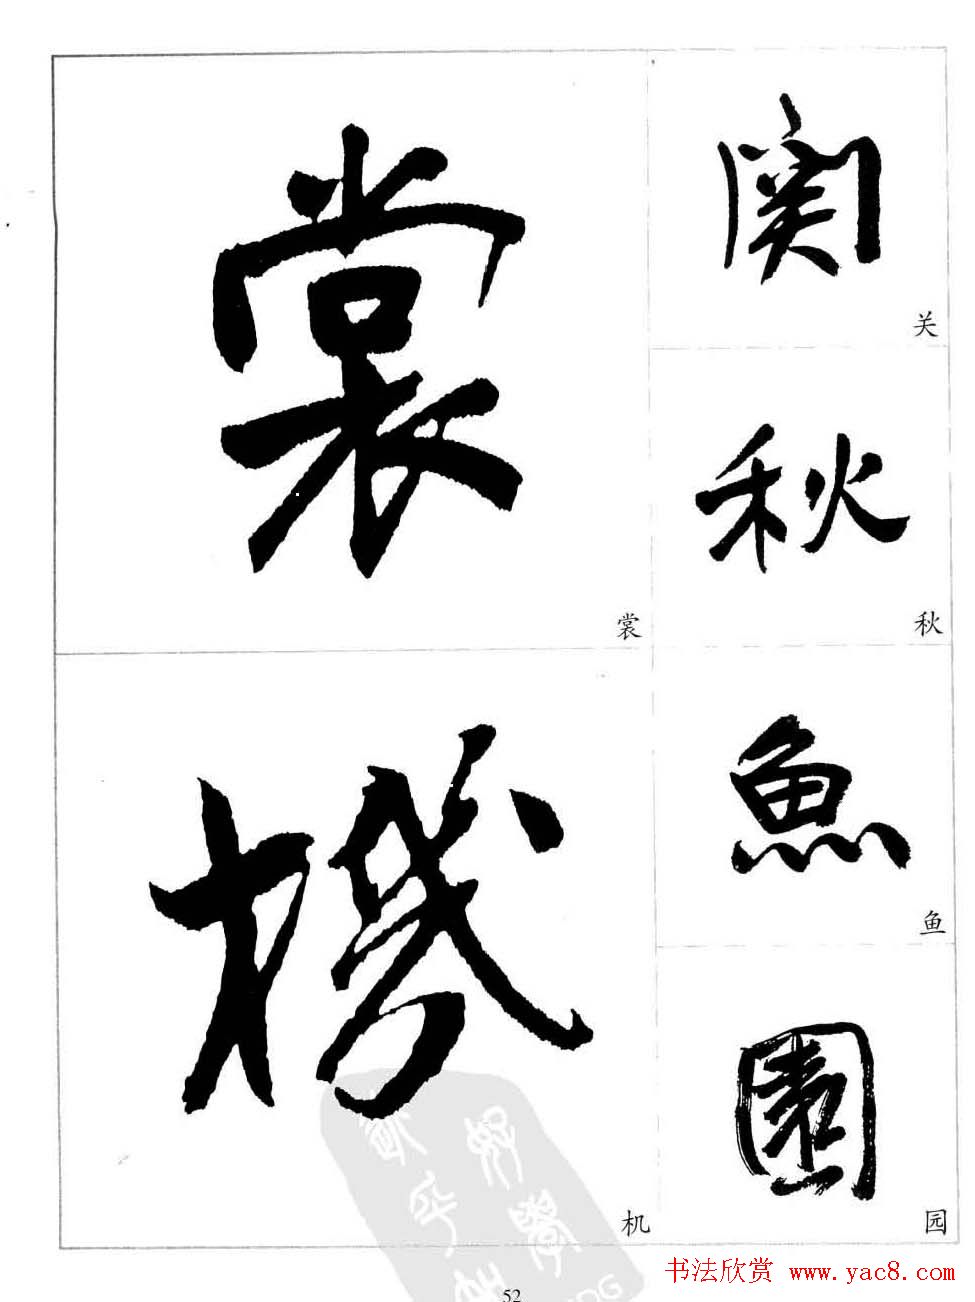 裳
裳
機
机
関
关
秋
秋
魚
鱼
園
园
52
书法欣赏 www.yac8.com